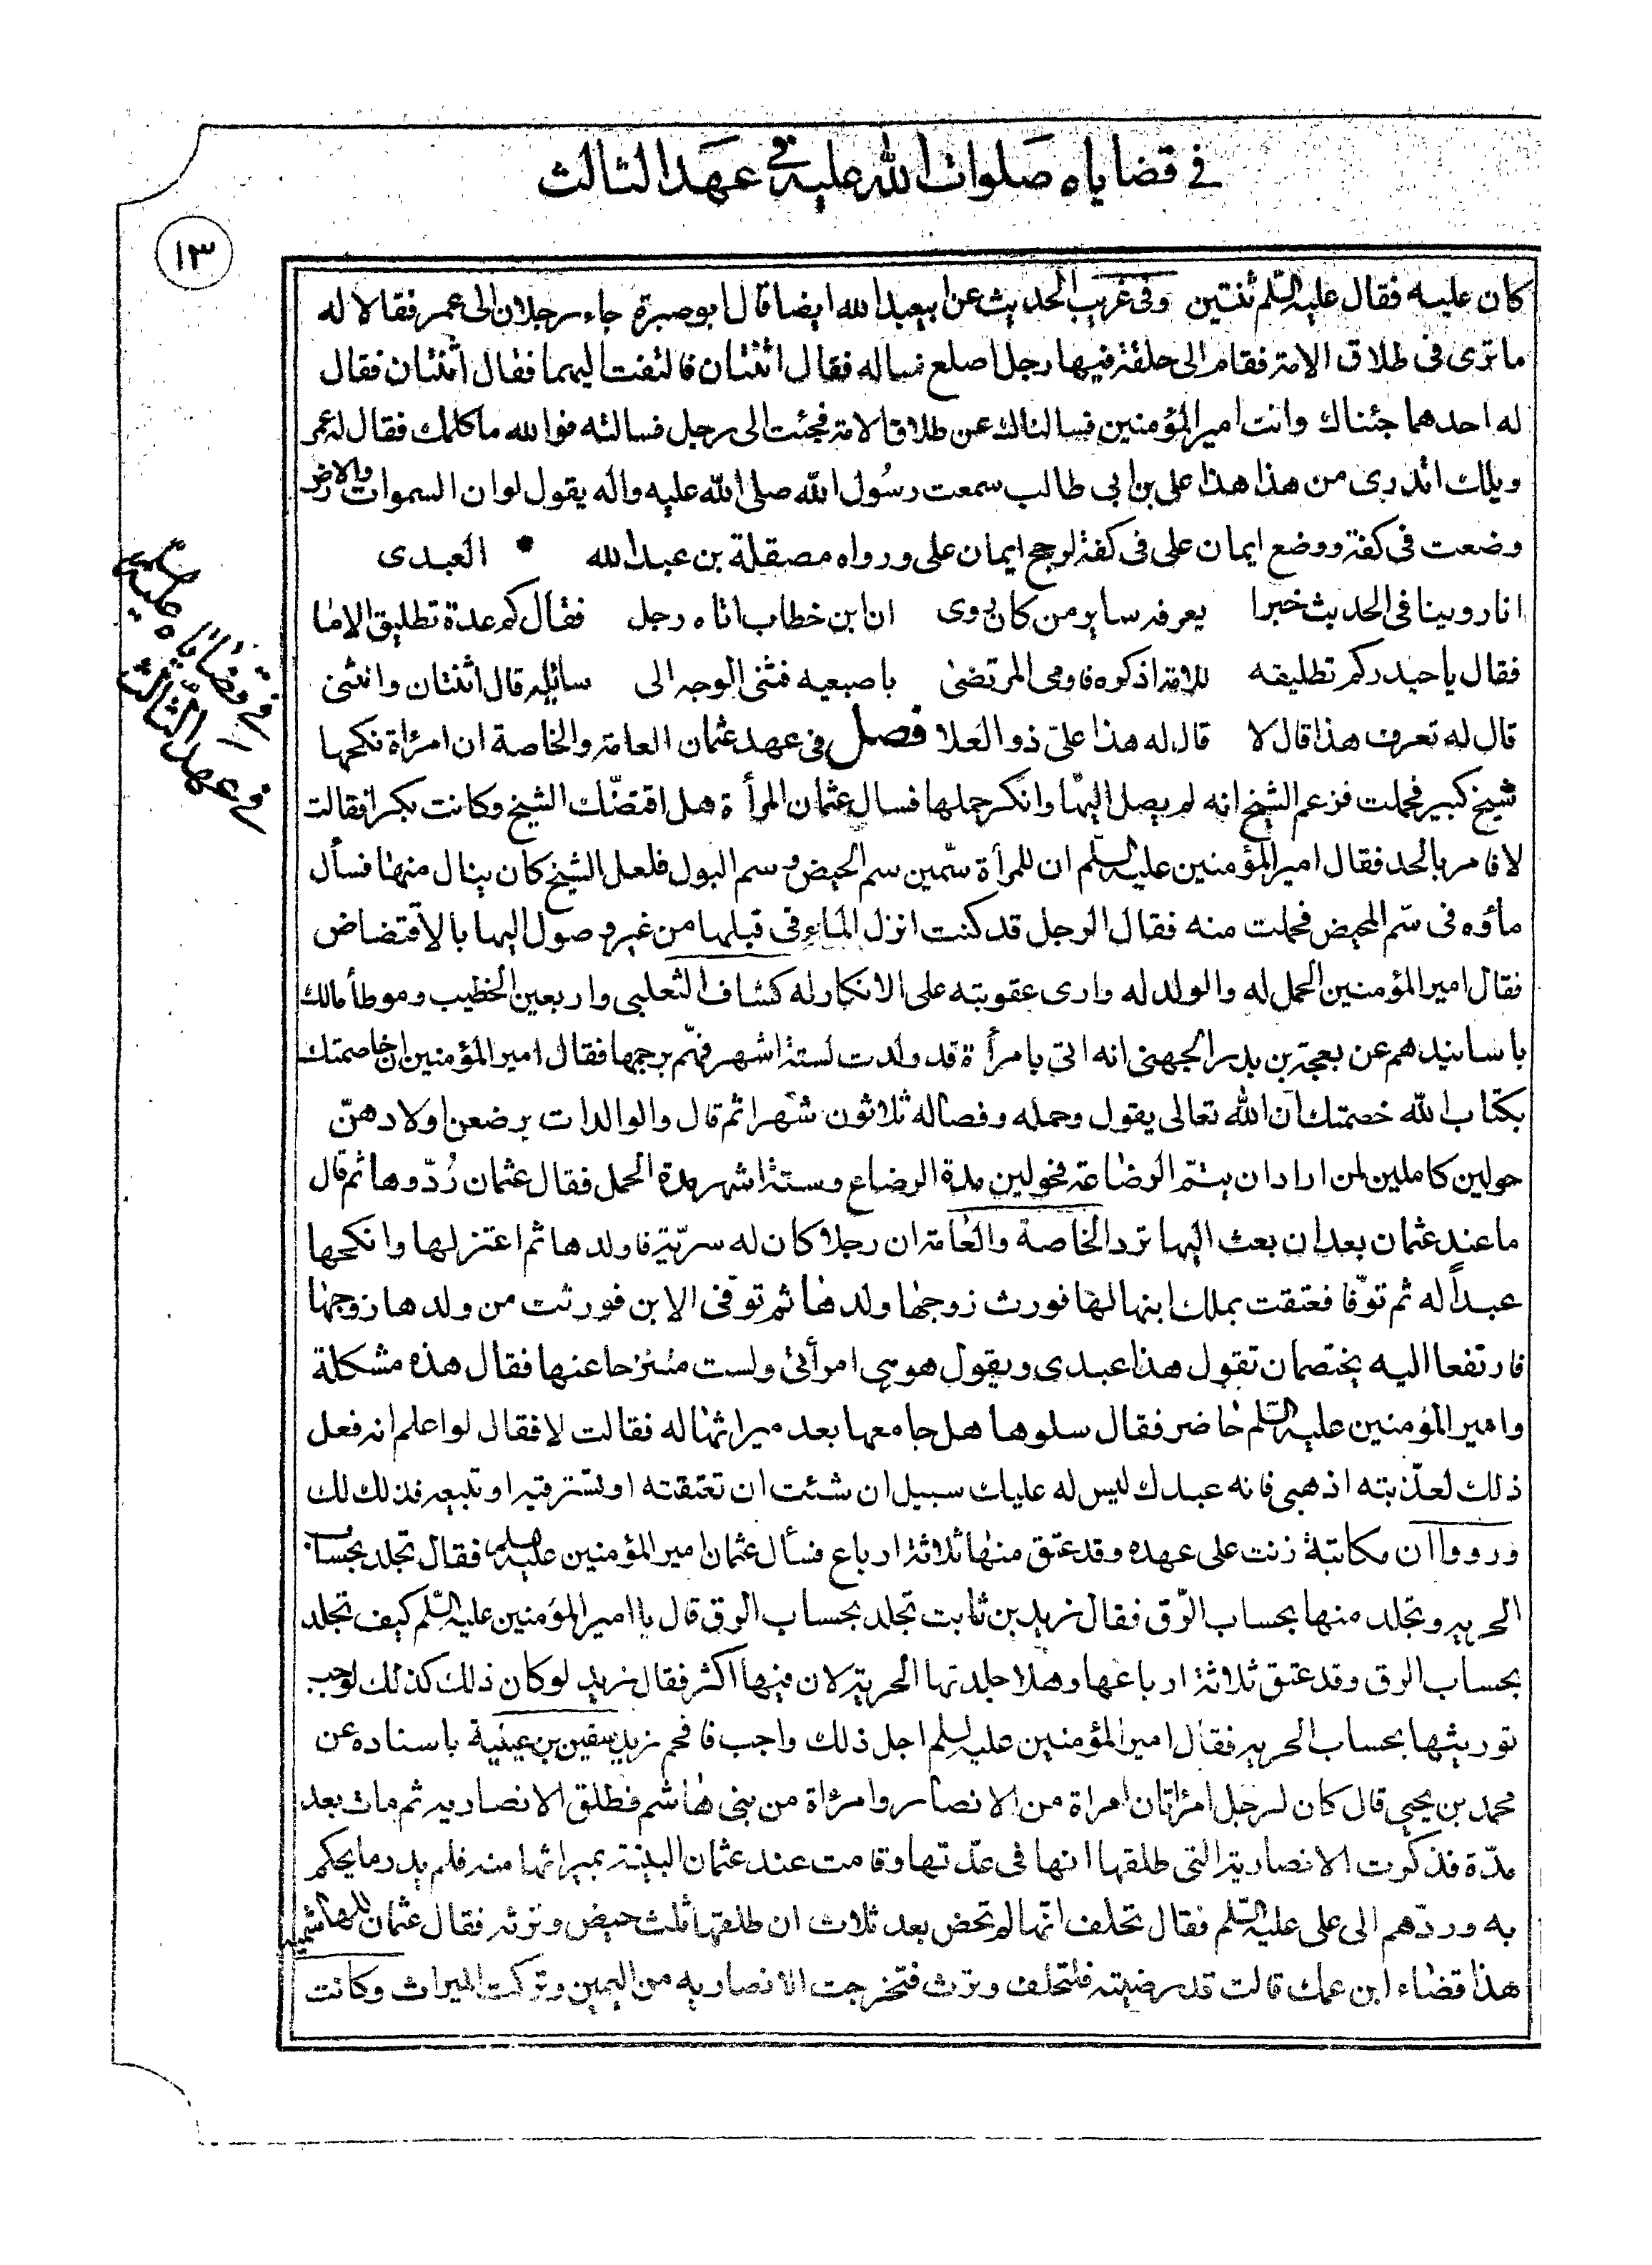 في قضاياه صلوات الله عليه في عهد الثالث
١٣
كان عليه فقال عليه السلم ثنتين وفى غريب الحديث عن ابيعبد الله ايضا قال ابو صبرة جاء رجلان الى عمر فقالا له
ما ترى فى طلاق الامة فقام الى حلقة فيها رجل اصلع فساله فقال اثنتان فالتفت اليهما فقال اثنتان فقال
له احدهما جئناك وانت امير المؤمنين فسالناك عن طلاق الامة فجئت الى رجل فسالته فوالله ما كلمك فقال له عمر
ويلك اتدرى من هذا هذا على بن ابى طالب سمعت رسول الله صلى الله عليه واله يقول لو ان السموات والارض
وضعت فى كفة ووضع ايمان على فى كفة لرجح ايمان على ورواه مصقلة بن عبد الله * العبدى
انا روينا فى الحديث خبرا يعرفه ساير من كان روى ان ابن خطاب اتاه رجل فقال كم عدة تطليق الاما
فقال يا حيدر كم تطليقه للامة اذكره فاومى المرتضى باصبعيه فثنى الوجه الى سائله قال اثنتان وانثنى
قال له تعرف هذا قال لا قال له هذا علىّ ذو العلا فصل فى عهد عثمان العامة والخاصة ان امرأة نكحها
شيخ كبير فحملت فزعم الشيخ انه لم يصل اليها وانكر حملها فسال عثمان المرأة هل اقتضّك الشيخ وكانت بكرا فقالت
لا فامر بالحد فقال امير المؤمنين عليه السلم ان للمرأة سمّين سم الحيض وسم البول فلعل الشيخ كان ينال منها فسأل
مأوه فى سمّ المحيض فحملت منه فقال الرجل قد كنت انزل الماء فى قبلها من غير وصول اليها بالاقتضاض
فقال امير المؤمنين الحمل له والولد له وارى عقوبته على الانكار له كشاف الثعلبى واربعين الخطيب وموطأ مالك
باسانيدهم عن بعجة بن بدر الجهنى انه اتى بامرأة قد ولدت لستة اشهر فهّم برجمها فقال امير المؤمنين ان خاصمتك
بكتاب الله خصمتك ان الله تعالى يقول وحمله وفصاله ثلاثون شهرا ثم قال والوالدات يرضعن اولادهنّ
حولين كاملين لمن اراد ان يتمّ الرضاعة فحولين مدة الرضاع وستة اشهر مدة الحمل فقال عثمان رُدّوها ثم قال
ما عند عثمان بعد ان بعث اليها ترد الخاصة والعامة ان رجلا كان له سرّية فاولدها ثم اعتزلها وانكحها
عبداً له ثم توفّا فعتقت بملك ابنها لها فورث زوجها ولدها ثم توفّى الابن فورثت من ولدها زوجها
فارتفعا اليه يختصمان تقول هذا عبدى ويقول هو هى امرأتى ولست متنزحا عنها فقال هذه مشكلة
وامير المؤمنين عليه السلم حاضر فقال سلوها هل جامعها بعد ميراثها له فقالت لا فقال لو اعلم انه فعل
ذلك لعذّبته اذهبى فانه عبدك ليس له عليك سبيل ان شئت ان تعتقته او تسترقيه او تبيعه فذلك لك
ورووا ان مكاتبة زنت على عهده وقد عتق منها ثلاثة ارباع فسأل عثمان امير المؤمنين عليه السلم فقال تجلد بحساب
الحرية وتجلد منها بحساب الرّق فقال زيد بن ثابت تجلد بحساب الرق قال يا امير المؤمنين عليه السّلم كيف تجلد
بحساب الرق وقد عتق ثلاثة ارباعها وهلا جلدتها الحرية لان فيها اكثر فقال زيد لو كان ذلك كذلك لوجب
توريثها بحساب الحرية فقال امير المؤمنين عليه السلم اجل ذلك واجب فافحم زيد سفين بن عيينة باسناده عن
محمد بن يحيى قال كان لرجل امرأتان امراة من الانصار وامرأة من بنى هاشم فطلق الانصاريه ثم مات بعد
مدّة فذكرت الانصارية التى طلقها انها فى عدّتها وقامت عند عثمان البينة بميراثها منه فلم يدر ما يحكم
به وردّهم الى على عليه السّلم فقال تحلف انّها لم تحض بعد ثلاث ان طلقها ثلث حيض وترثه فقال عثمان للهاشمية
هذا قضاء ابن عمك قالت قد رضيته فلتحلف وترث فتخرجت الانصاريه من اليمين وتركت الميراث وكانت
في قضاياه عليه السلام
في عهد الثالث